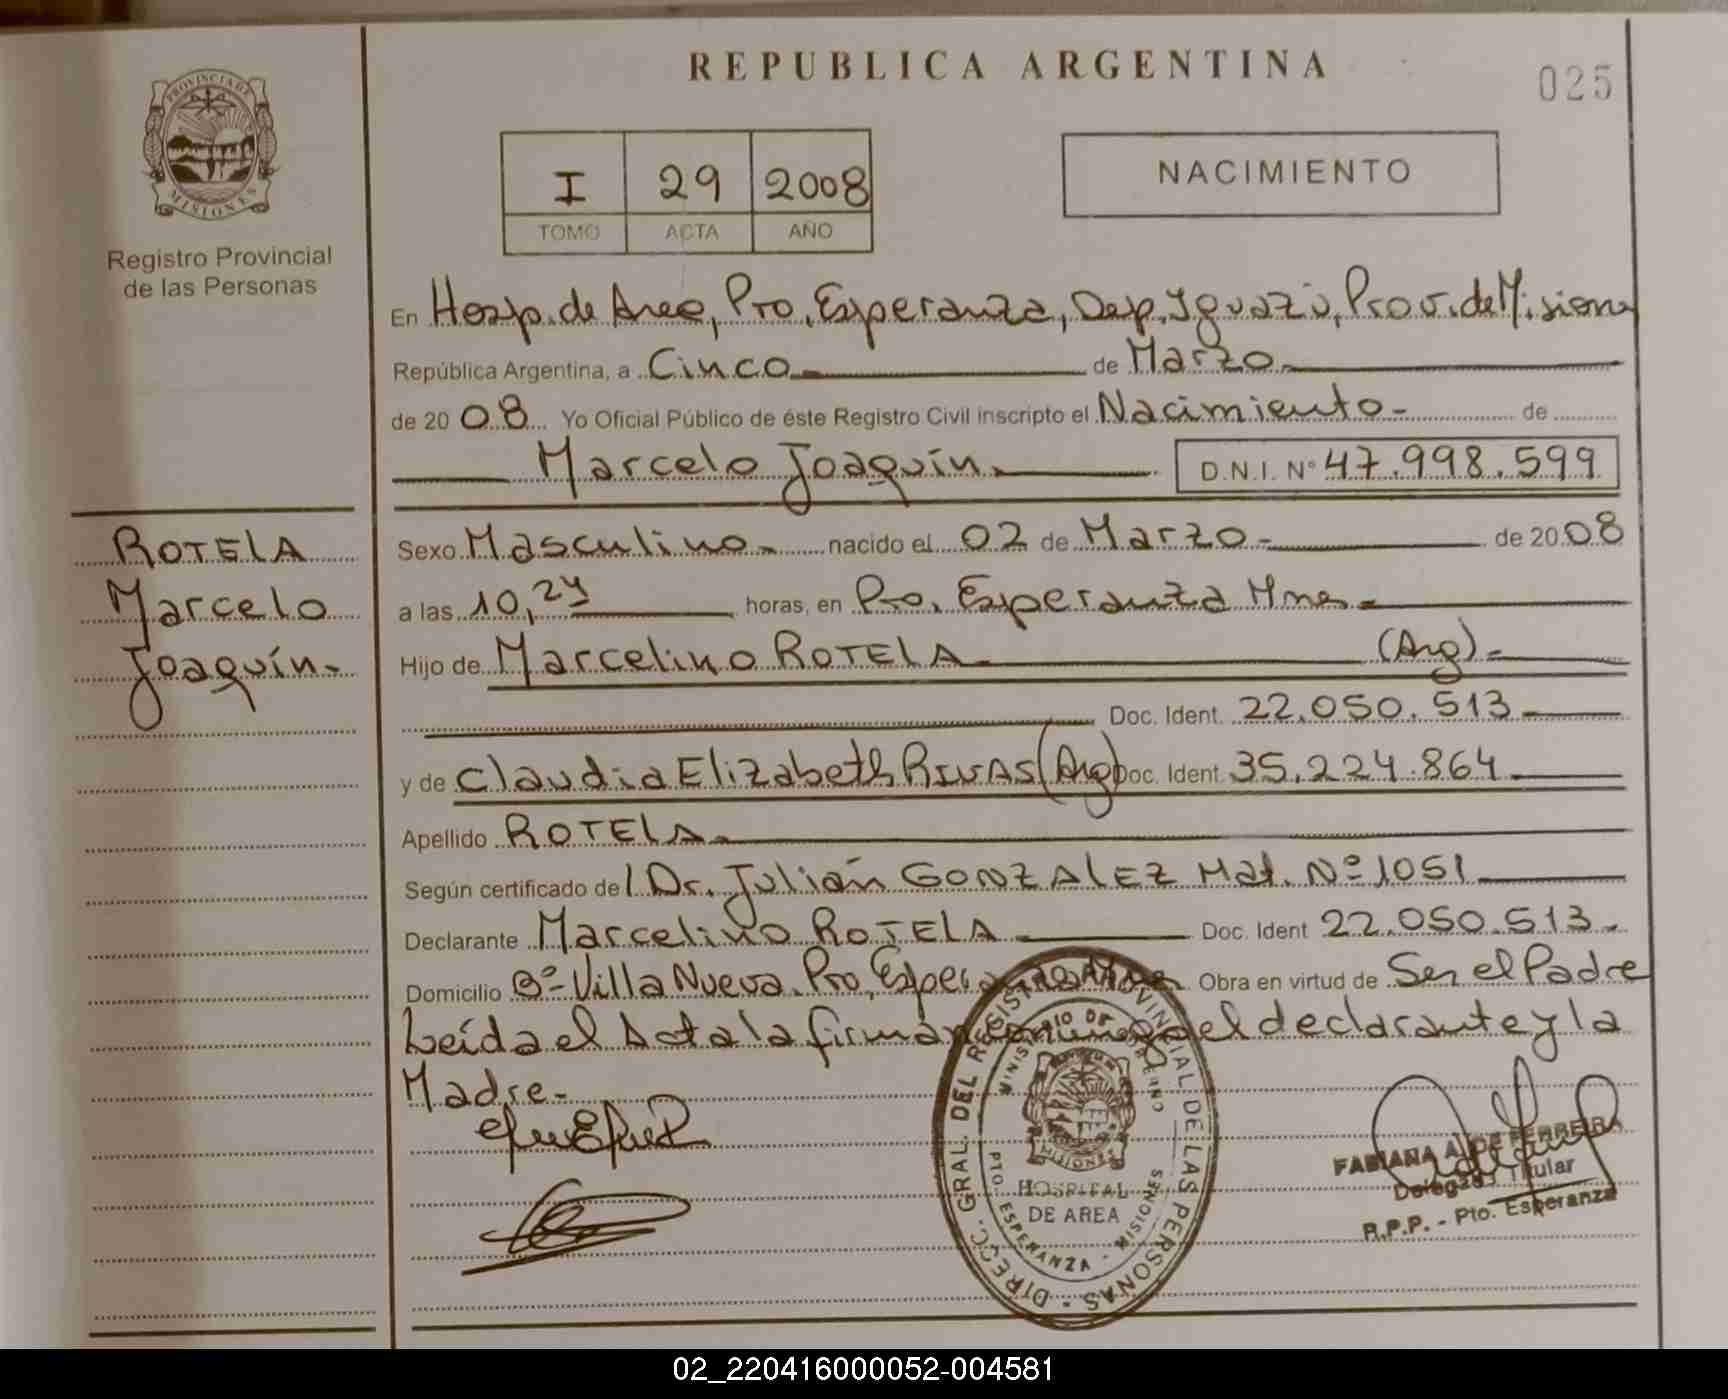 REPUBLICA ARGENTINA
025
PROVINCIA DE
MISIONES
Registro Provincial
de las Personas
I 29 2008
TOMO ACTA AÑO
NACIMIENTO
En Hosp. de Area, Pto. Esperanza, Dep. Iguazú, Prov. de Misiones
República Argentina, a Cinco de Marzo
de 2008 Yo Oficial Público de éste Registro Civil inscripto el Nacimiento - de
Marcelo Joaquín. D.N.I. Nº 47.998.599
ROTElA
Marcelo
Joaquín-
Sexo Masculino - nacido el 02 de Marzo - de 2008
a las 10,24 horas, en Pto. Esperanza Mnes -
Hijo de Marcelino ROTElA (Arg) -
Doc. Ident. 22.050.513
y de Claudia Elizabeth RIVAS (Arg) Doc. Ident. 35.224.864
Apellido ROTElA -
Según certificado de l Dr. Julián GONZAlEZ Mat. Nº 1051
Declarante Marcelino ROTElA Doc. Ident 22.050.513 -
Domicilio Bº Villa Nueva. Pto, Esperanza Mnes Obra en virtud de Ser el Padre
Leída el Acta la firman conmigo el declarante y la
Madre -
DIRECC. GRAL. DEL REGISTRO PROVINCIAL DE LAS PERSONAS -
MINISTERIO DE GOBIERNO
MISIONES
HOSPITAL
DE AREA
PTO. ESPERANZA - MISIONES
FABIANA A. DE FERREIRA
Delegada Titular
R.P.P. - Pto. Esperanza
02_220416000052-004581